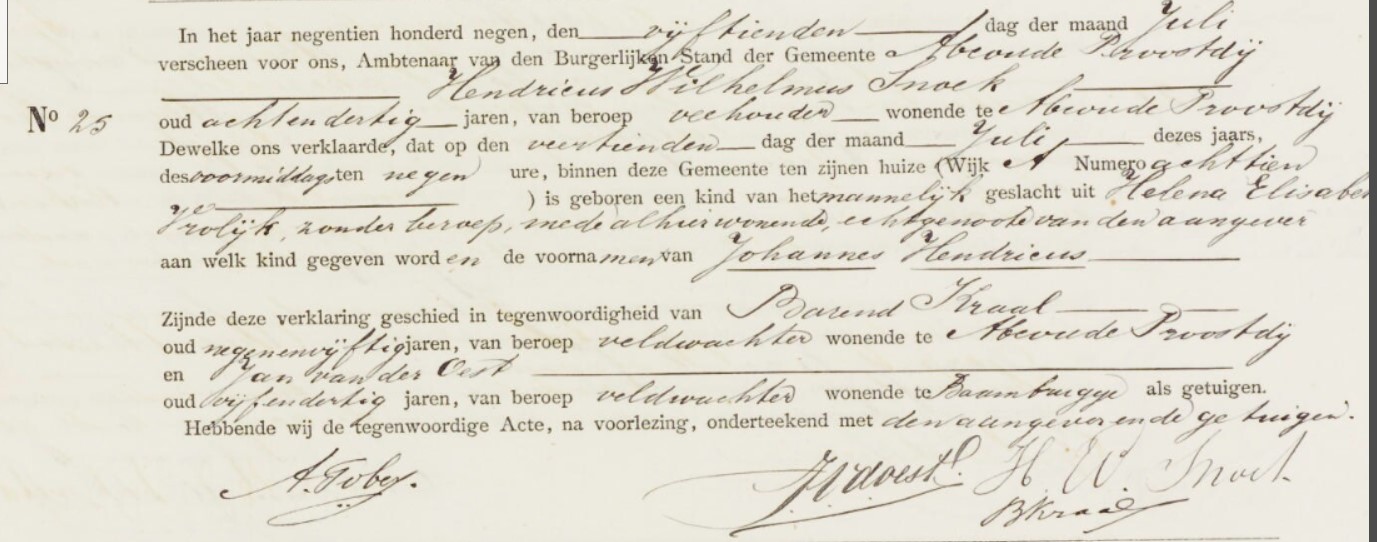 In het jaar negentien honderd negen, den vijftienden dag der maand Juli
verscheen voor ons, Ambtenaar van den Burgerlijken Stand der Gemeente Abcoude Proostdij
Hendricus Wilhelmus Snoek
No 25 oud achtendertig jaren, van beroep veehouder wonende te Abcoude Proostdij
Dewelke ons verklaarde, dat op den veertienden dag der maand Juli dezes jaars,
des voormiddags ten negen ure, binnen deze Gemeente ten zijnen huize (Wijk A Numero achttien
) is geboren een kind van het mannelijk geslacht uit Helena Elisabeth
Vrolijk, zonder beroep, mede alhier wonende, echtgenoote van den aangever
aan welk kind gegeven worden de voornamen van Johannes Hendricus
Zijnde deze verklaring geschied in tegenwoordigheid van Barend Kraal
oud negenenvijftig jaren, van beroep veldwachter wonende te Abcoude Proostdij
en Jan van der Oest
oud vijfendertig jaren, van beroep veldwachter wonende te Baambrugge als getuigen.
Hebbende wij de tegenwoordige Acte, na voorlezing, onderteekend met den aangever en de getuigen.
H. W. Snoek.
BKraal